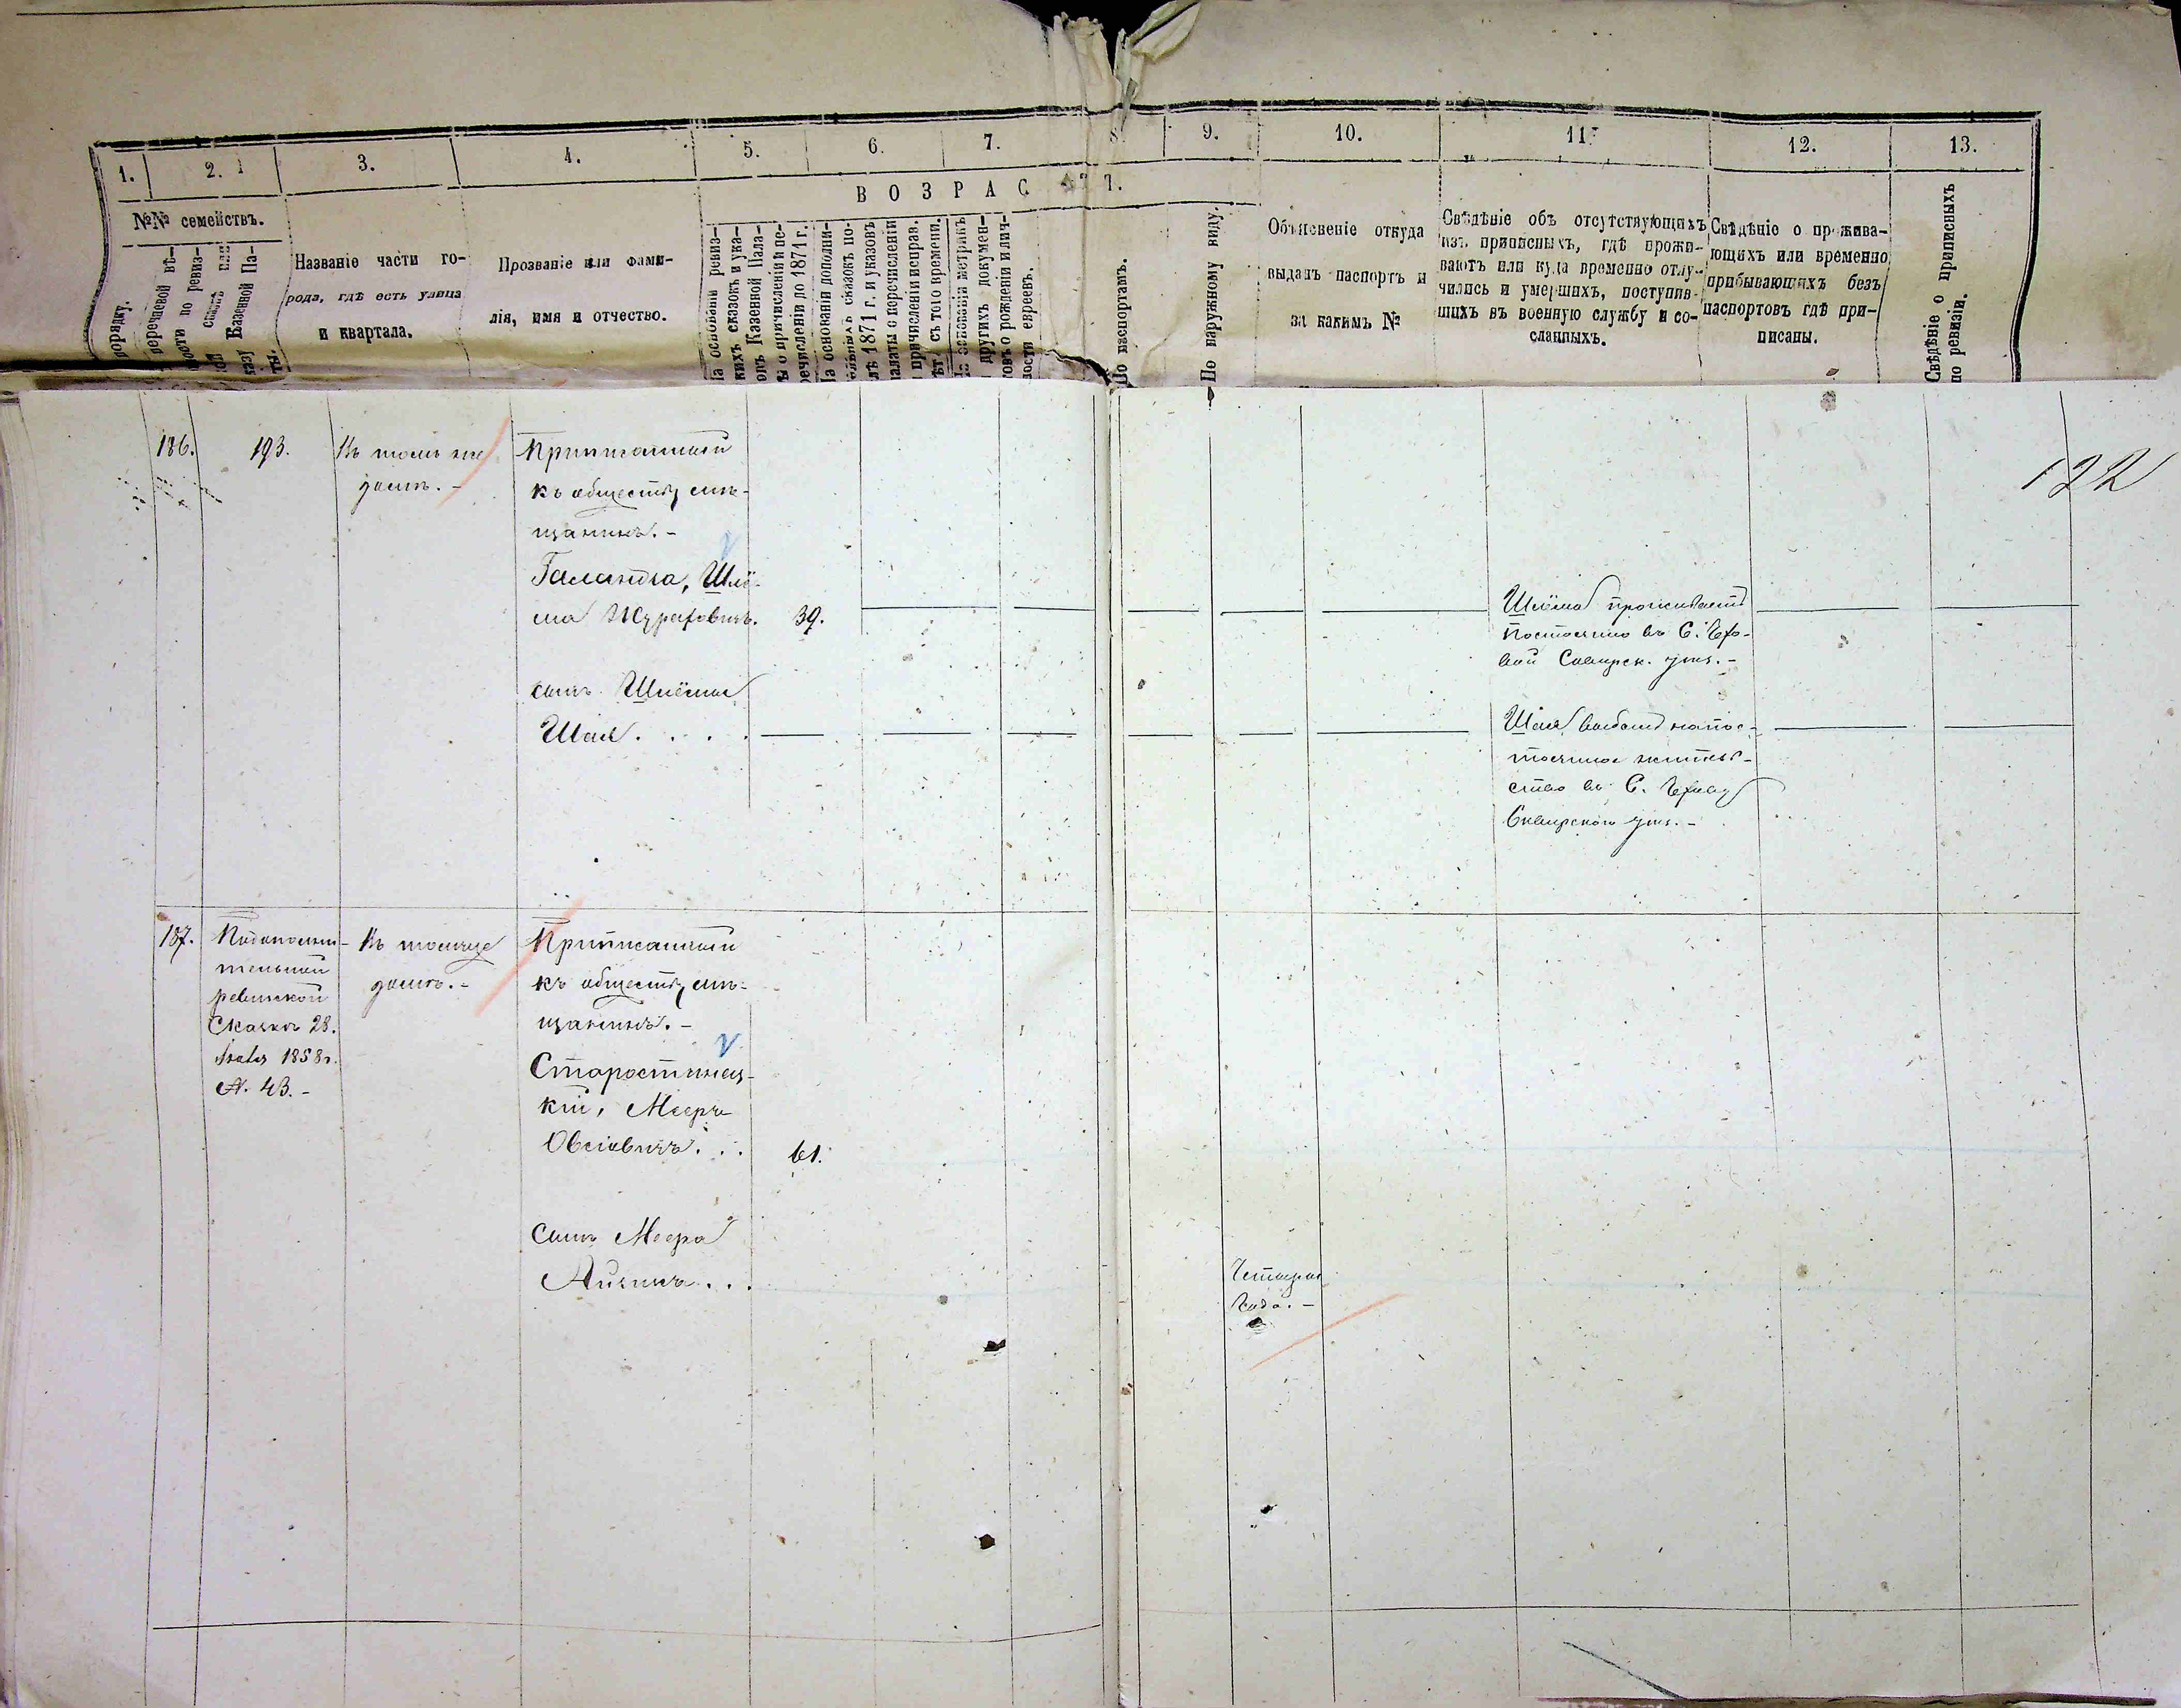 1. 2. 3. 4. 5. 6. 7. 8. 9. 10. 11. 12. 13.
№№ семействъ.
ВОЗРАСТЪ.
порядку.
перечневой вѣ-
ности по ревиз-
сказкѣ или
казу Казенной Па-
ты.
Названіе части го-
рода, гдѣ есть улица
и квартала.
Прозваніе или фами-
лія, имя и отчество.
На основаніи ревиз-
кихъ сказокъ и ука-
овъ Казенной Пала-
ы о причисленіи и пе-
речисленіи до 1871 г.
На основаніи дополни-
ельныхъ сказокъ по-
лѣ 1871 г. и указовъ
палаты о перечисленіи
и причисленіи исправ.
лѣт. съ того времени.
На основаніи метрикъ
и другихъ докумен-
товъ о рожденіи и лич-
ности евреевъ.
По паспортамъ.
По наружному виду.
Объясненіе откуда
выданъ паспортъ и
за какимъ №
Свѣдѣніе объ отсутствующихъ
изъ приписныхъ, гдѣ прожи-
ваютъ или куда временно отлу-
чились и умершихъ, поступив-
шихъ въ военную службу и со-
сланныхъ.
Свѣдѣніе о прожива-
ющихъ или временно
прибывающихъ безъ
паспортовъ гдѣ при-
писаны.
Свѣдѣніе о приписныхъ
по ревизіи.
122
186.
193.
Въ томъ же
домѣ. -
Приписанный
къ обществу мѣ-
щанинъ. -
Галандза, Шлё-
ма
39.
сынъ Шлёмы
Шая . . . .
Шлёма проживаетъ
постоянно въ С.
Сквирск. уѣз. -
Шая выбылъ на пос-
тоянное житель-
ство въ С.
Сквирскаго уѣз. -
187.
По дополни-
тельной
ревизской
Сказкѣ 28.
1858 г.
№. 43. -
Въ томъ же
домѣ. -
Приписанный
къ обществу мѣ-
щанинъ. -
Старостинец-
кій, Мееръ
Овсіовичъ . . .
61.
Сынъ Меера
Айзикъ . . .
Четыре
года. -